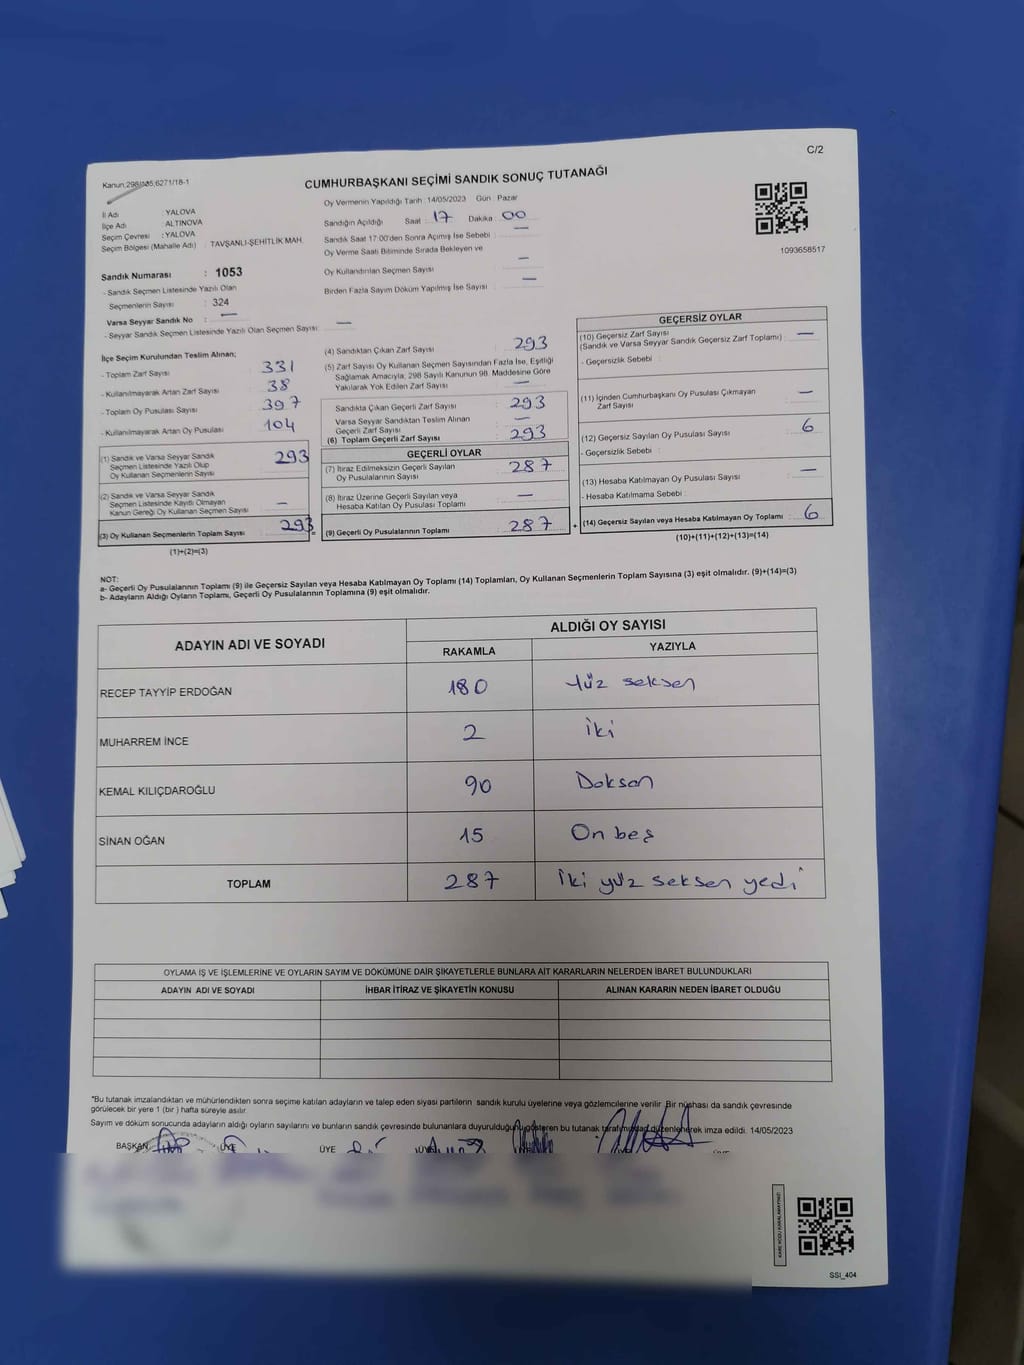 C/2
Kanun,298/105,6271/18-1
CUMHURBAŞKANI SEÇİMİ SANDIK SONUÇ TUTANAĞI
İl Adı : YALOVA
İlçe Adı : ALTINOVA
Seçim Çevresi : YALOVA
Seçim Bölgesi (Mahalle Adı) : TAVŞANLI-ŞEHİTLİK MAH.
Oy Vermenin Yapıldığı Tarih 14/05/2023 Gün Pazar
Sandığın Açıldığı Saat : 17 Dakika : 00
Sandık Saat 17:00'den Sonra Açılmış İse Sebebi : —
Oy Verme Saati Bitiminde Sırada Bekleyen ve
Oy Kullandırılan Seçmen Sayısı : —
Birden Fazla Sayım Döküm Yapılmış İse Sayısı : —
1093658517
Sandık Numarası : 1053
- Sandık Seçmen Listesinde Yazılı Olan
Seçmenlerin Sayısı : 324
Varsa Seyyar Sandık No : —
- Seyyar Sandık Seçmen Listesinde Yazılı Olan Seçmen Sayısı: —
İlçe Seçim Kurulundan Teslim Alınan;
- Toplam Zarf Sayısı : 331
- Kullanılmayarak Artan Zarf Sayısı : 38
- Toplam Oy Pusulası Sayısı : 397
- Kullanılmayarak Artan Oy Pusulası : 104
(1) Sandık ve Varsa Seyyar Sandık
Seçmen Listesinde Yazılı Olup
Oy Kullanan Seçmenlerin Sayısı : 293
(2) Sandık ve Varsa Seyyar Sandık
Seçmen Listesinde Kayıtlı Olmayan
Kanun Gereği Oy Kullanan Seçmen Sayısı : —
(3) Oy Kullanan Seçmenlerin Toplam Sayısı : 293
(1)+(2)=(3)
(4) Sandıktan Çıkan Zarf Sayısı : 293
(5) Zarf Sayısı Oy Kullanan Seçmen Sayısından Fazla İse, Eşitliği
Sağlamak Amacıyla, 298 Sayılı Kanunun 98. Maddesine Göre
Yakılarak Yok Edilen Zarf Sayısı : —
Sandıkta Çıkan Geçerli Zarf Sayısı : 293
Varsa Seyyar Sandıktan Teslim Alınan
Geçerli Zarf Sayısı : —
(6) Toplam Geçerli Zarf Sayısı : 293
GEÇERLİ OYLAR
(7) İtiraz Edilmeksizin Geçerli Sayılan
Oy Pusulalarının Sayısı : 287
(8) İtiraz Üzerine Geçerli Sayılan veya
Hesaba Katılan Oy Pusulası Toplamı : —
= (9) Geçerli Oy Pusulalarının Toplamı : 287
GEÇERSİZ OYLAR
(10) Geçersiz Zarf Sayısı
(Sandık ve Varsa Seyyar Sandık Geçersiz Zarf Toplamı) : —
- Geçersizlik Sebebi :
(11) İçinden Cumhurbaşkanı Oy Pusulası Çıkmayan
Zarf Sayısı : —
(12) Geçersiz Sayılan Oy Pusulası Sayısı : 6
- Geçersizlik Sebebi :
(13) Hesaba Katılmayan Oy Pusulası Sayısı : —
- Hesaba Katılmama Sebebi :
+ (14) Geçersiz Sayılan veya Hesaba Katılmayan Oy Toplamı : 6
(10)+(11)+(12)+(13)=(14)
NOT:
a- Geçerli Oy Pusulalarının Toplamı (9) ile Geçersiz Sayılan veya Hesaba Katılmayan Oy Toplamı (14) Toplamları, Oy Kullanan Seçmenlerin Toplam Sayısına (3) eşit olmalıdır. (9)+(14)=(3)
b- Adayların Aldığı Oyların Toplamı, Geçerli Oy Pusulalarının Toplamına (9) eşit olmalıdır.
ADAYIN ADI VE SOYADI ALDIĞI OY SAYISI
RAKAMLA YAZIYLA
RECEP TAYYİP ERDOĞAN 180 Yüz seksen
MUHARREM İNCE 2 İki
KEMAL KILIÇDAROĞLU 90 Doksan
SİNAN OĞAN 15 On beş
TOPLAM 287 İki yüz seksen yedi
OYLAMA İŞ VE İŞLEMLERİNE VE OYLARIN SAYIM VE DÖKÜMÜNE DAİR ŞİKAYETLERLE BUNLARA AİT KARARLARIN NELERDEN İBARET BULUNDUKLARI
ADAYIN ADI VE SOYADI İHBAR İTİRAZ VE ŞİKAYETİN KONUSU ALINAN KARARIN NEDEN İBARET OLDUĞU
*Bu tutanak imzalandıktan ve mühürlendikten sonra seçime katılan adayların ve talep eden siyasi partilerin sandık kurulu üyelerine veya gözlemcilerine verilir. Bir nüshası da sandık çevresinde
görülecek bir yere 1 (bir ) hafta süreyle asılır.
Sayım ve döküm sonucunda adayların aldığı oyların sayılarını ve bunların sandık çevresinde bulunanlara duyurulduğunu gösteren bu tutanak tarafımızdan düzenlenerek imza edildi. 14/05/2023
BAŞKAN ÜYE ÜYE ÜYE
KARE KODU KARALAMAYINIZ!
SSI_404